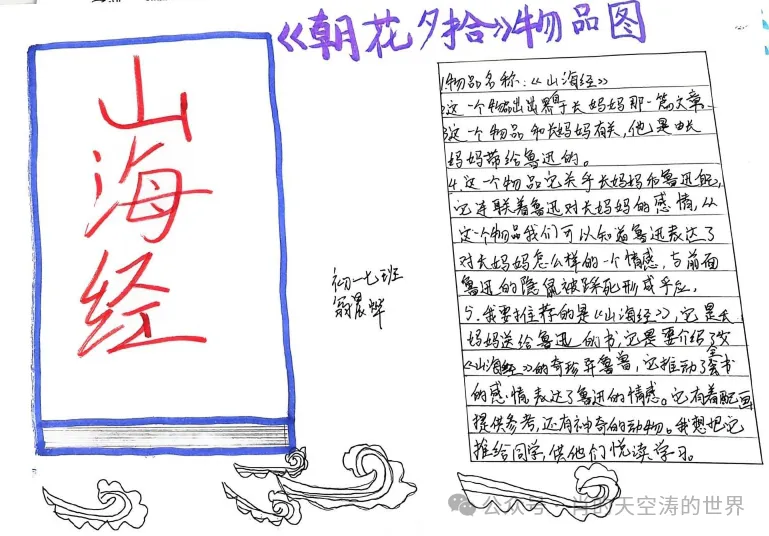 《朝花夕拾》物品图
山
海
经
初一七班
1.物品名称:《山海经》
2.这一个物品出自于长妈妈那一篇文章
3.这个物品和长妈妈有关,他是由长
妈妈带给鲁迅的。
4.这一个物品它关乎长妈妈和鲁迅
它连联着鲁迅对长妈妈的感情,从
这个物品我们可以知道鲁迅表达了
对长妈妈怎么样的一个情感,与前面
鲁迅的隐鼠被踩死形成乎应,
5.我要推荐的是《山海经》,它是长
妈妈送给鲁迅的书,它是要介绍了
《山海经》的奇珍异兽,它推动了全书
的感情表达了鲁迅的情感。它有着配画
提供参考,还有神奇的动物。我想把它
推给同学,供他们悦读学习。
公众号·肖的天空涛的世界